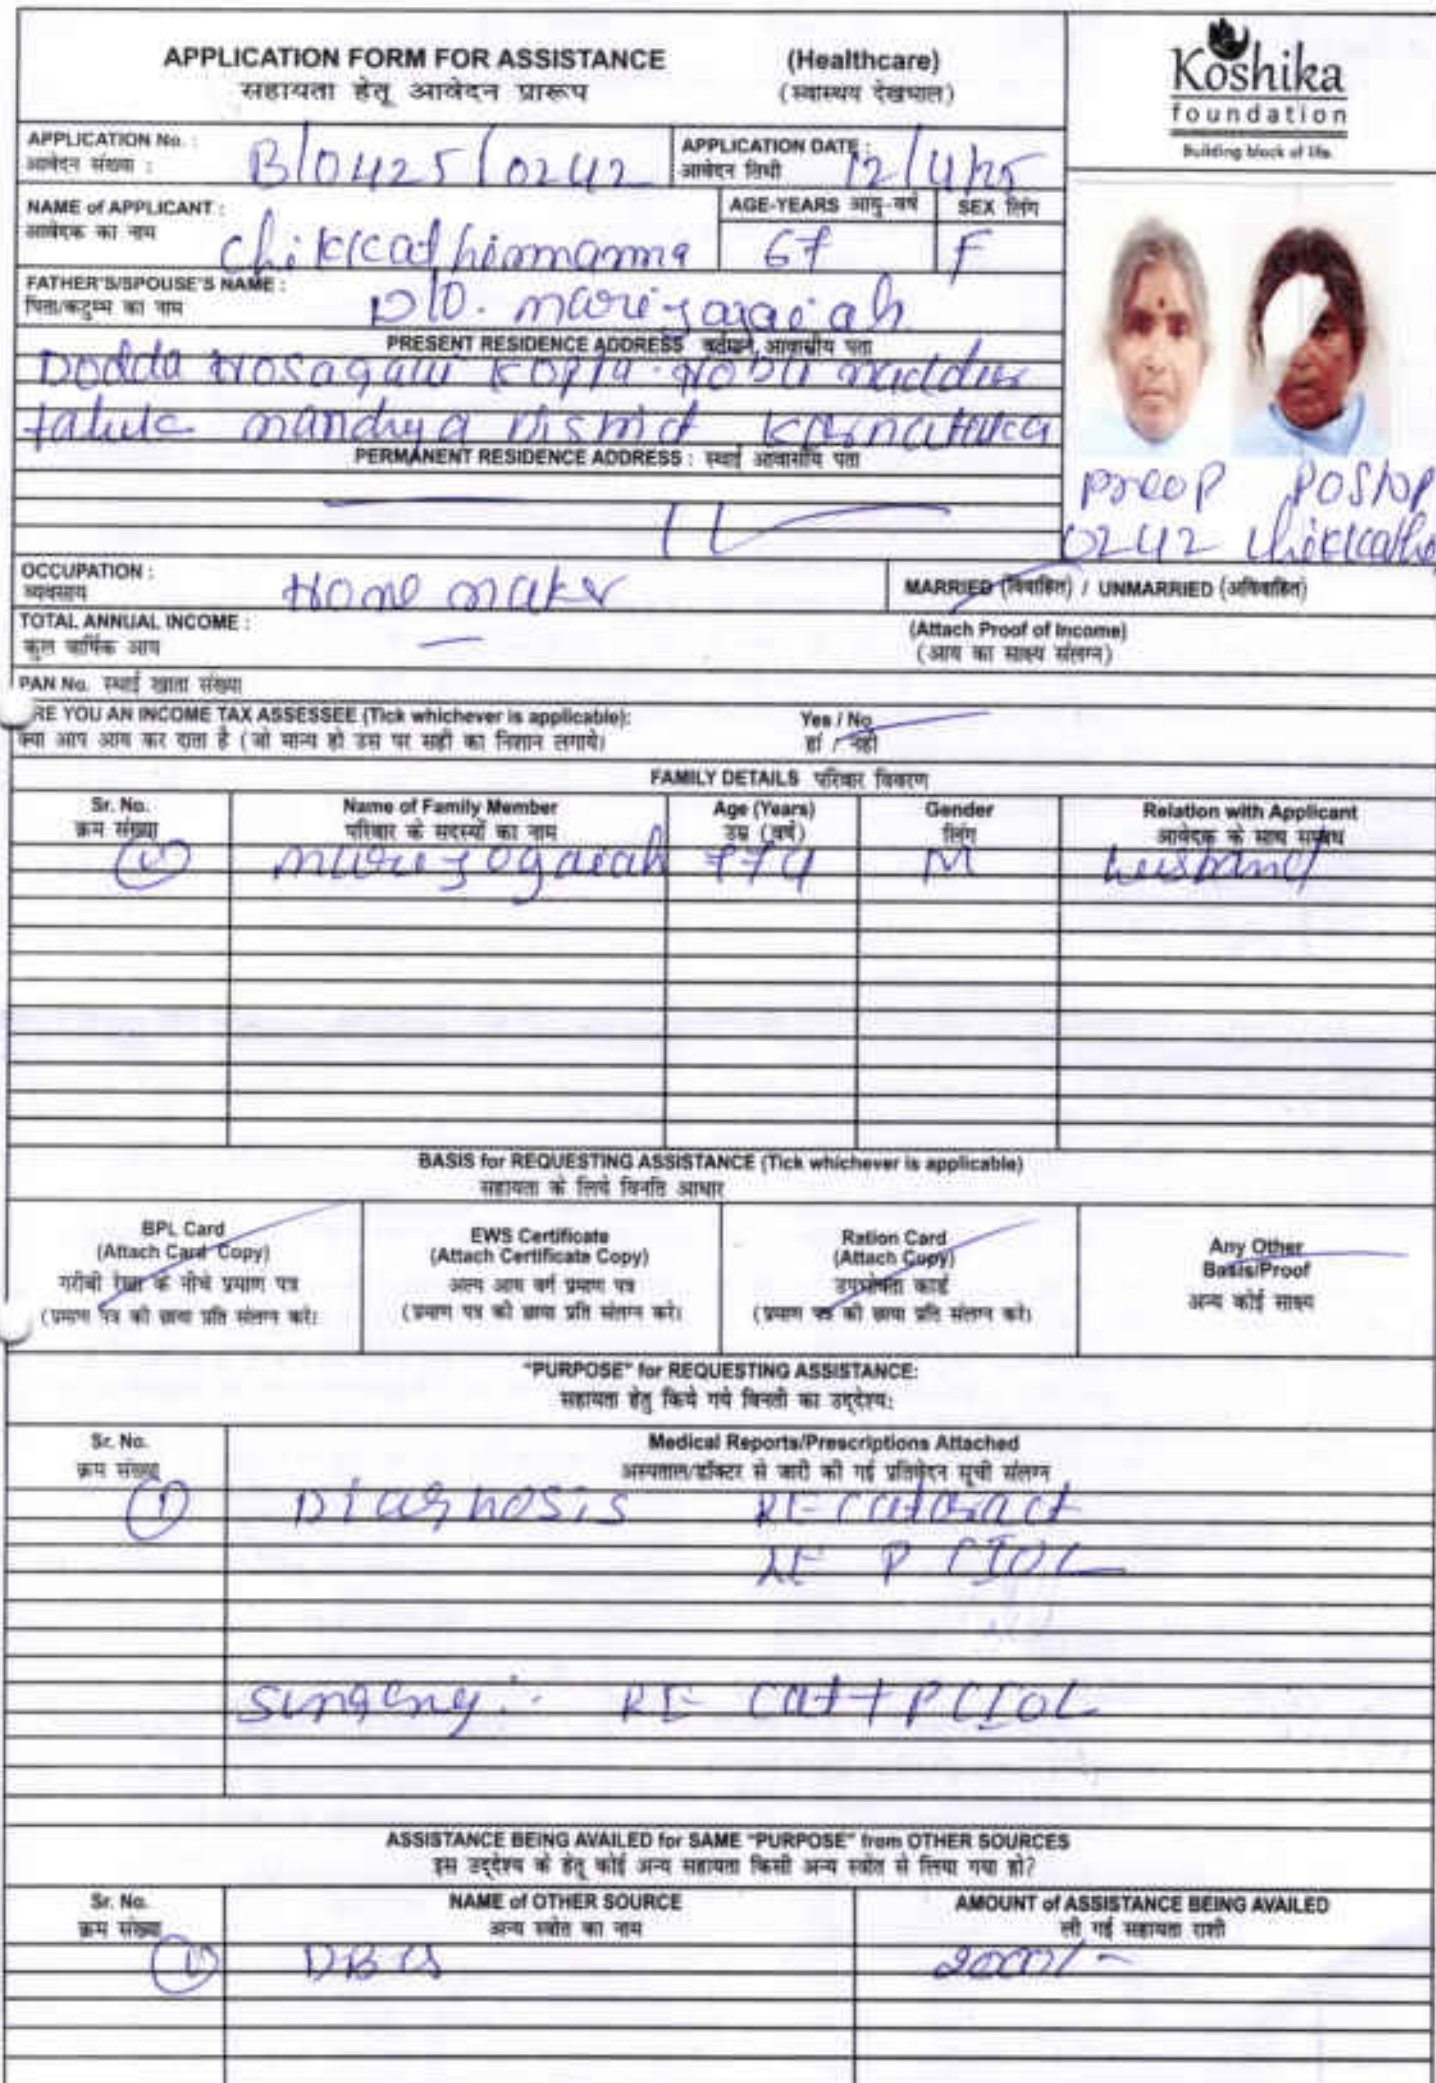 APPLICATION FORM FOR ASSISTANCE (Healthcare)
सहायता हेतू आवेदन प्रारूप (स्वास्थय देखभाल)
Koshika
foundation
Building block of life.
APPLICATION No. :
आवेदन संख्या :
B/0425/0242
APPLICATION DATE :
आवेदन तिथी
12/4/25
NAME of APPLICANT :
आवेदक का नाम
AGE-YEARS आयु-वर्ष
SEX लिंग
67
F
FATHER'S/SPOUSE'S NAME :
पिता/कटुम्ब का नाम
PRESENT RESIDENCE ADDRESS वर्तमान आवासीय पता
Dodda Hosagavi Koppa Hobli maddur
taluk mandya District Karnataka
PERMANENT RESIDENCE ADDRESS : स्थाई आवासीय पता
preop postop
0242
OCCUPATION :
व्यवसाय
Home maker
MARRIED (विवाहित) / UNMARRIED (अविवाहित)
TOTAL ANNUAL INCOME :
कुल वार्षिक आय
—
(Attach Proof of Income)
(आय का साक्ष्य संलग्न)
PAN No. स्थाई खाता संख्या
RE YOU AN INCOME TAX ASSESSEE (Tick whichever is applicable): Yes / No
क्या आप आय कर दाता है (जो मान्य हो उस पर सही का निशान लगाये) हां / नही
FAMILY DETAILS परिवार विवरण
Sr. No. Name of Family Member Age (Years) Gender Relation with Applicant
क्रम संख्या परिवार के सदस्यों का नाम उम्र (वर्ष) लिंग आवेदक के साथ सम्बंध
M husband
BASIS for REQUESTING ASSISTANCE (Tick whichever is applicable)
सहायता के लिये विनति आधार
BPL Card
(Attach Card Copy)
गरीबी रेखा के नीचे प्रमाण पत्र
(प्रमाण पत्र की छाया प्रति संलग्न करे)
EWS Certificate
(Attach Certificate Copy)
अल्प आय वर्ग प्रमाण पत्र
(प्रमाण पत्र की छाया प्रति संलग्न करे)
Ration Card
(Attach Copy)
उपभोक्ता कार्ड
(प्रमाण पत्र की छाया प्रति संलग्न करे)
Any Other
Basis/Proof
अन्य कोई साक्ष्य
"PURPOSE" for REQUESTING ASSISTANCE:
सहायता हेतु किये गये विनती का उद्देश्य:
Sr. No. Medical Reports/Prescriptions Attached
क्रम संख्या अस्पताल/डॉक्टर से जारी की गई प्रतिवेदन सूची संलग्न
1 Diagnosis RE Cataract
LE PCIOL
Surgery: RE Cat + PCIOL
ASSISTANCE BEING AVAILED for SAME "PURPOSE" from OTHER SOURCES
इस उद्देश्य के हेतू कोई अन्य सहायता किसी अन्य स्त्रोत से लिया गया हो?
Sr. No. NAME of OTHER SOURCE AMOUNT of ASSISTANCE BEING AVAILED
क्रम संख्या अन्य स्त्रोत का नाम ली गई सहायता राशी
1 DBCS 2000/-